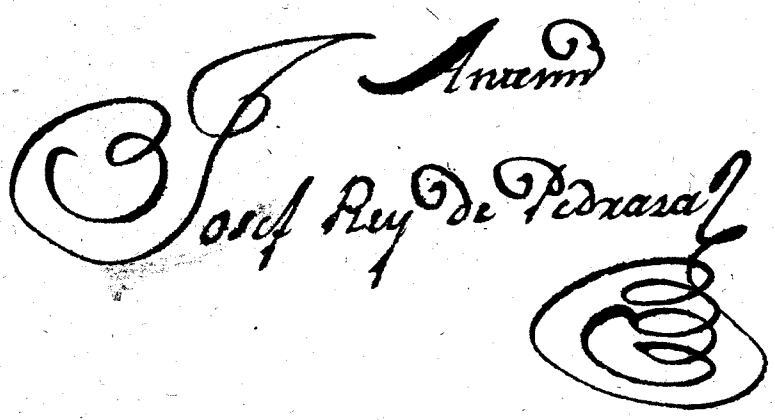 Antemi
Josef Rey de Pedrasa